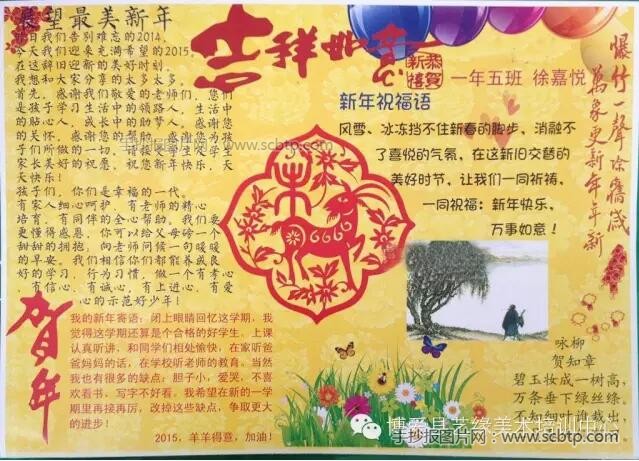 展望最美新年
昨日我们告别难忘的2014,
今天我们迎来充满希望的2015,
在这辞旧迎新的美好时刻,
我想和大家分享的太多太多。
首先,感谢我们敬爱的老师们,您们
是孩子学习生活中的领路人,生活中
的贴心人,成长中的助梦人。感谢您
的关怀,感谢您的帮助,感谢您为孩
子们所做的一切,请接受学生及学生
家长美好的祝愿,祝您新年快乐,天
天快乐!
孩子们,你们是幸福的一代。
有家人细心呵护,有老师的精心
培育,有同伴的全心帮助。我们要
更懂得感恩,你可以给父母磅一个
甜甜的拥抱,向老师问候一句暖暖
的早安。我们相信你们都能养成良
好的学习,行为习惯,做一个有孝心
,有信心,有诚心,有上进心,有爱
心的示范好少年!
吉祥如意
恭贺新禧
一年五班 徐嘉悦
新年祝福语
风雪、冰冻挡不住新春的脚步,消融不
了喜悦的气氛,在这新旧交替的
美好时节,让我们一同祈祷,
一同祝福:新年快乐,
万事如意!
爆竹一声除旧岁
万象更新年年新
贺年
我的新年寄语:闭上眼睛回忆这学期,我
觉得这学期还算是个合格的好学生。上课
认真听讲,和同学们相处愉快,在家听爸
爸妈妈的话,在学校听老师的教育。当然
我也有很多的缺点:胆子小,爱哭,不喜
欢看书,写字不好看。我希望在新的一学
期里再接再厉,改掉这些缺点,争取更大
的进步!
2015,羊羊得意,加油!
咏柳
贺知章
碧玉妆成一树高,
万条垂下绿丝绦。
不知细叶谁裁出,
博爱县艺缘美术培训中心
手抄报图片网:www.scbtp.com
www.scbtp.com